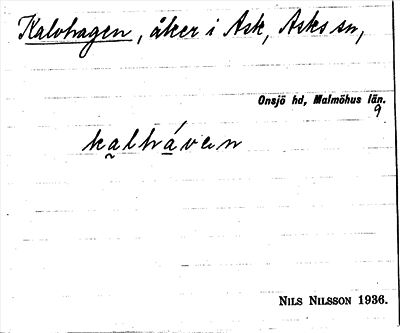 Kalvhagen, åker i Ask, Asks sn,
Onsjö hd, Malmöhus län.
9
NILS NILSSON 1936.